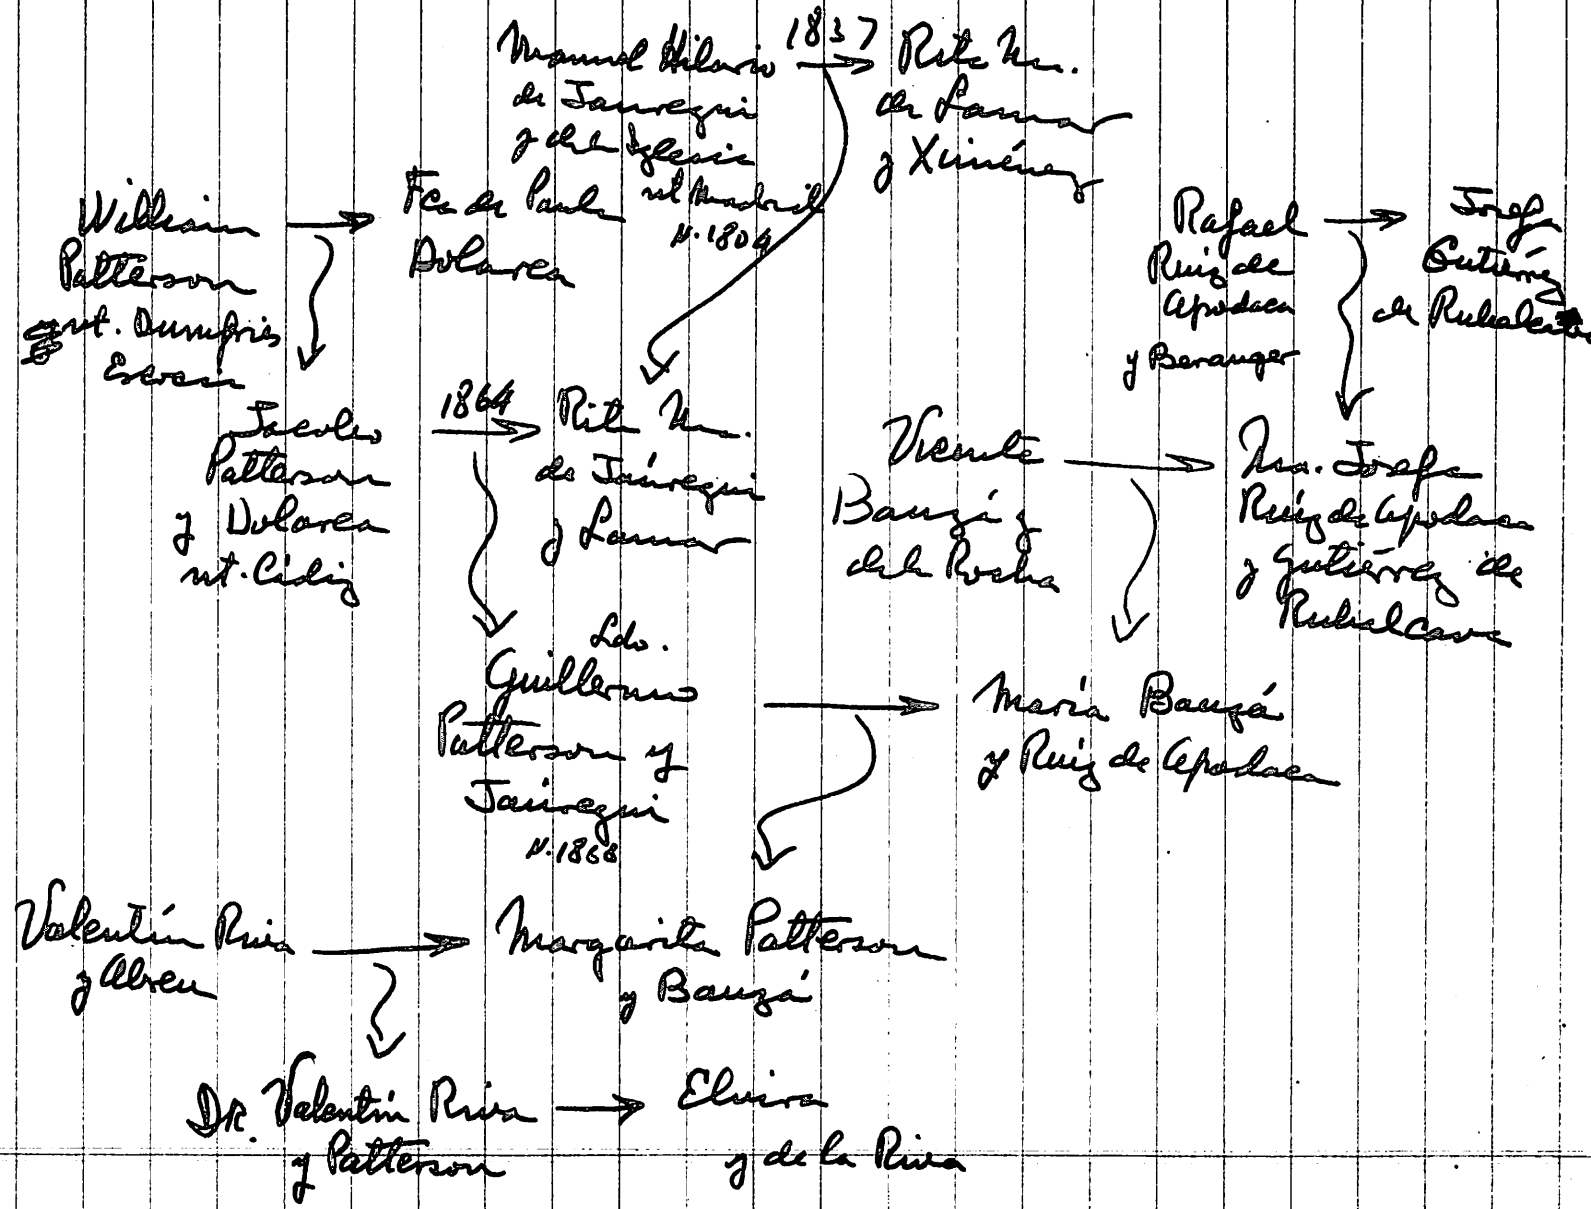 1837
Manuel Hilario
de Jauregui
y de la Iglesia
nt Madrid
N. 1804
Rita Ma.
de Lamar
y Ximénez
William
Patterson
nt. Dumfris
Escocia
Fca de Paula
Dolarea
Rafael
Ruiz de
Apodaca
y Beranger
Josefa
Gutiérrez
de
Jacobo
Patterson
y Dolarea
nt. Cádiz
1864
Rita Ma.
de Jáuregui
y Lamar
Vicente
Bauzá y
de la Rocha
Ma. Josefa
Ruiz de Apodaca
y Gutiérrez de
Rubalcava
Ldo.
Guillermo
Patterson y
Jáuregui
N. 1868
María Bauzá
y Ruiz de Apodaca
Valentín Riva
y Abreu
Margarita Patterson
y Bauzá
DR. Valentín Riva
y Patterson
Elvira
y de la Riva